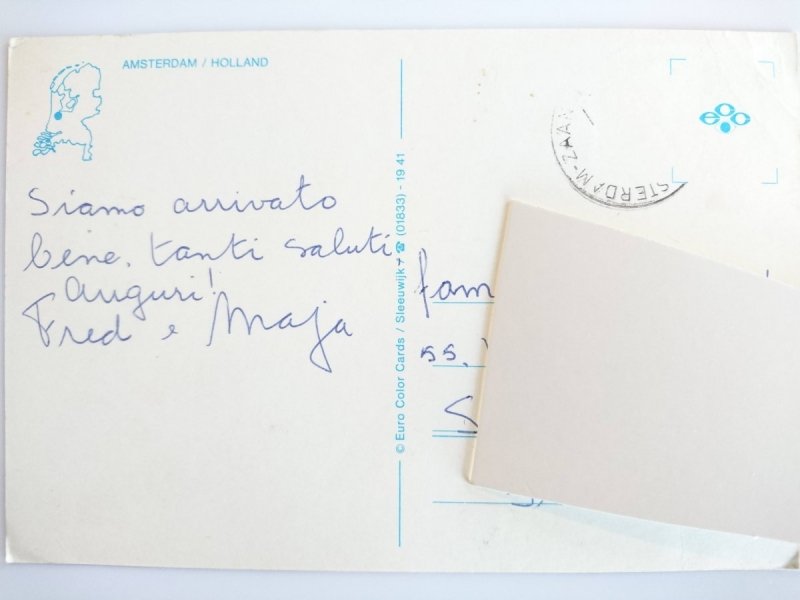 AMSTERDAM / HOLLAND
Siamo arrivato
bene. tanti saluti.
Auguri!
Fred e Maja
© Euro Color Cards / Sleeuwijk / ☎ (01833) - 19 41
STERDAM-ZAA
eco
fam
ss.
S